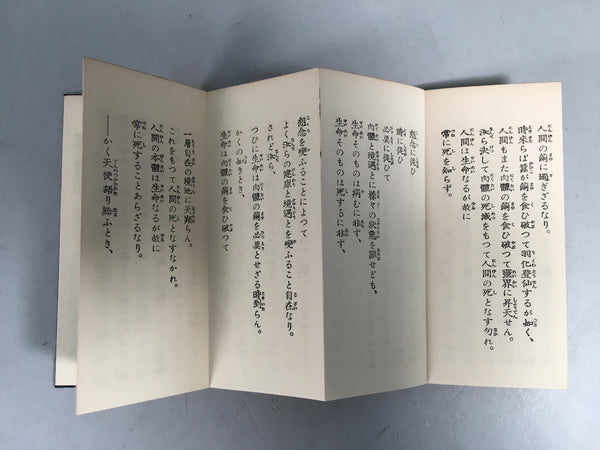 人間の繭に過ぎざるなり。
時来らば蚕が繭を食ひ破つて羽化登仙するが如く、
人間もまた肉體の繭を食ひ破つて靈界に昇天せん。
汝ら決して肉體の死滅をもつて人間の死となす勿れ。
人間は生命なるが故に
常に死を知らず。
想念に從ひ
時に從ひ
必要に從ひて
肉體と境遇とに様々の狀態を顯せども、
生命そのものは病むに非ず、
生命そのものは死するに非ず、
想念を變ふることによつて
よく汝らの健康と境遇とを變ふること自在なり。
されど汝ら、
つひに生命は肉體の繭を必要とせざる時到らん。
かくの如きとき、
生命は肉體の繭を食ひ破つて
一層自在の境地に天翔らん。
これをもつて人間の死となすなかれ。
人間の本體は生命なるが故に
常に死することあらざるなり。
――かく天使語り給ふとき、